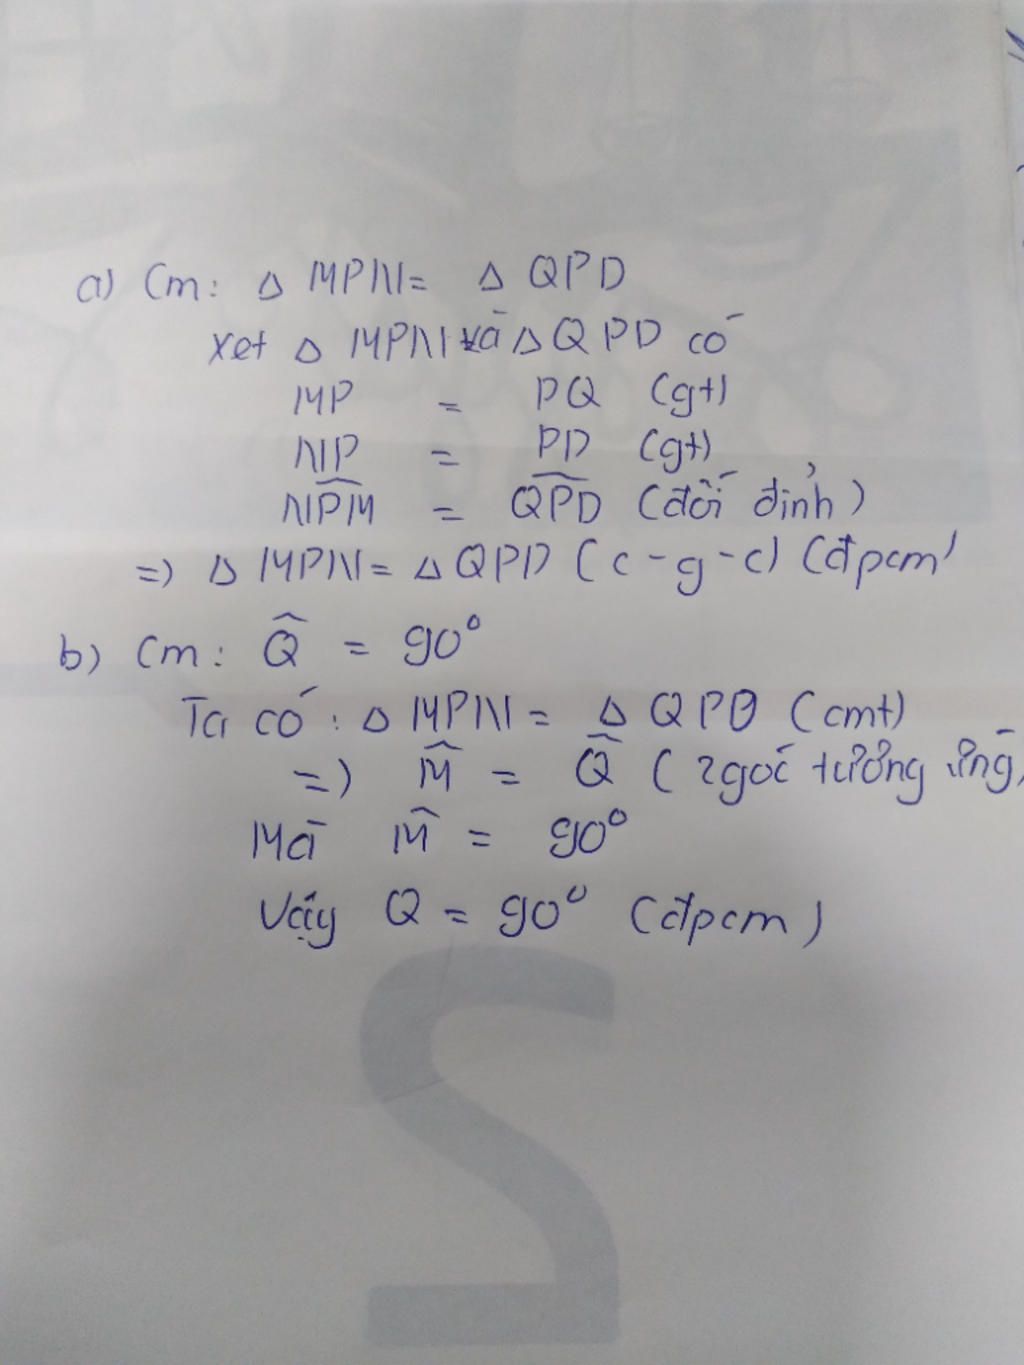 a) Cm: Δ MPN = Δ QPD
Xet Δ MPN và Δ QPD có
MP = PQ (gt)
NP = PD (gt)
\widehat{NPM} = \widehat{QPD} (đối đỉnh)
=) Δ MPN = Δ QPD (c-g-c) (đpcm)
b) Cm: \widehat{Q} = 90°
Ta có: Δ MPN = Δ QPD (cmt)
=) \widehat{M} = \widehat{Q} (2 góc tương ứng)
Mà \widehat{M} = 90°
Vậy Q = 90° (đpcm)
2